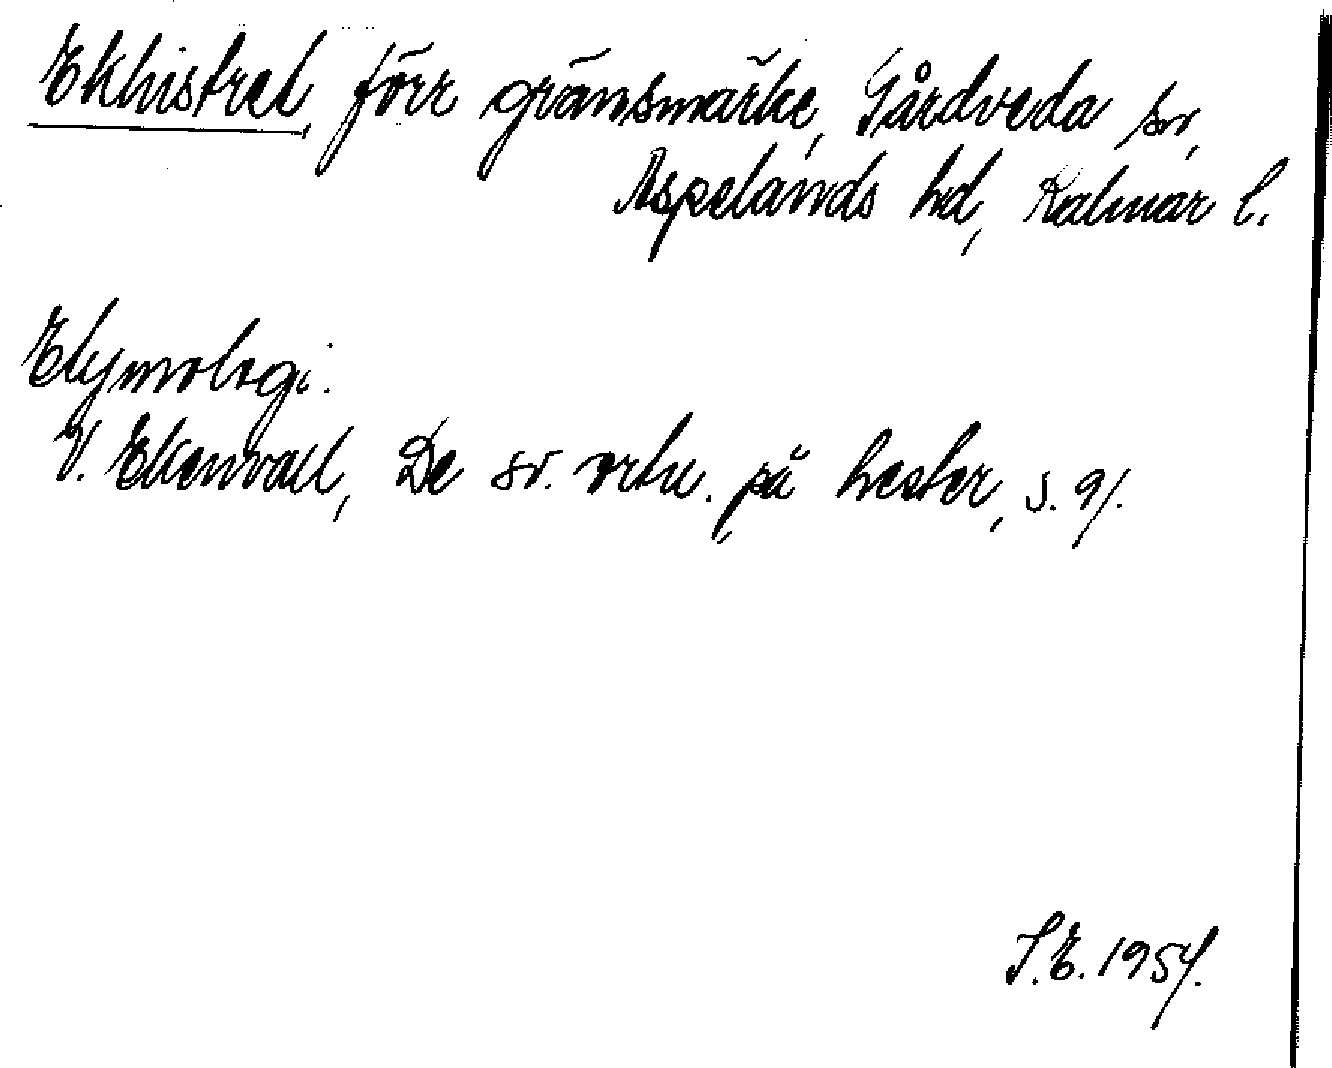 Ekhistret, förr gränsmärke, Gårdveda sn,
Aspelands hd, Kalmar l.
Etymologi.
V. Ekenvall, De sv. ortn. på hester, s. 91.
S.E. 1954.